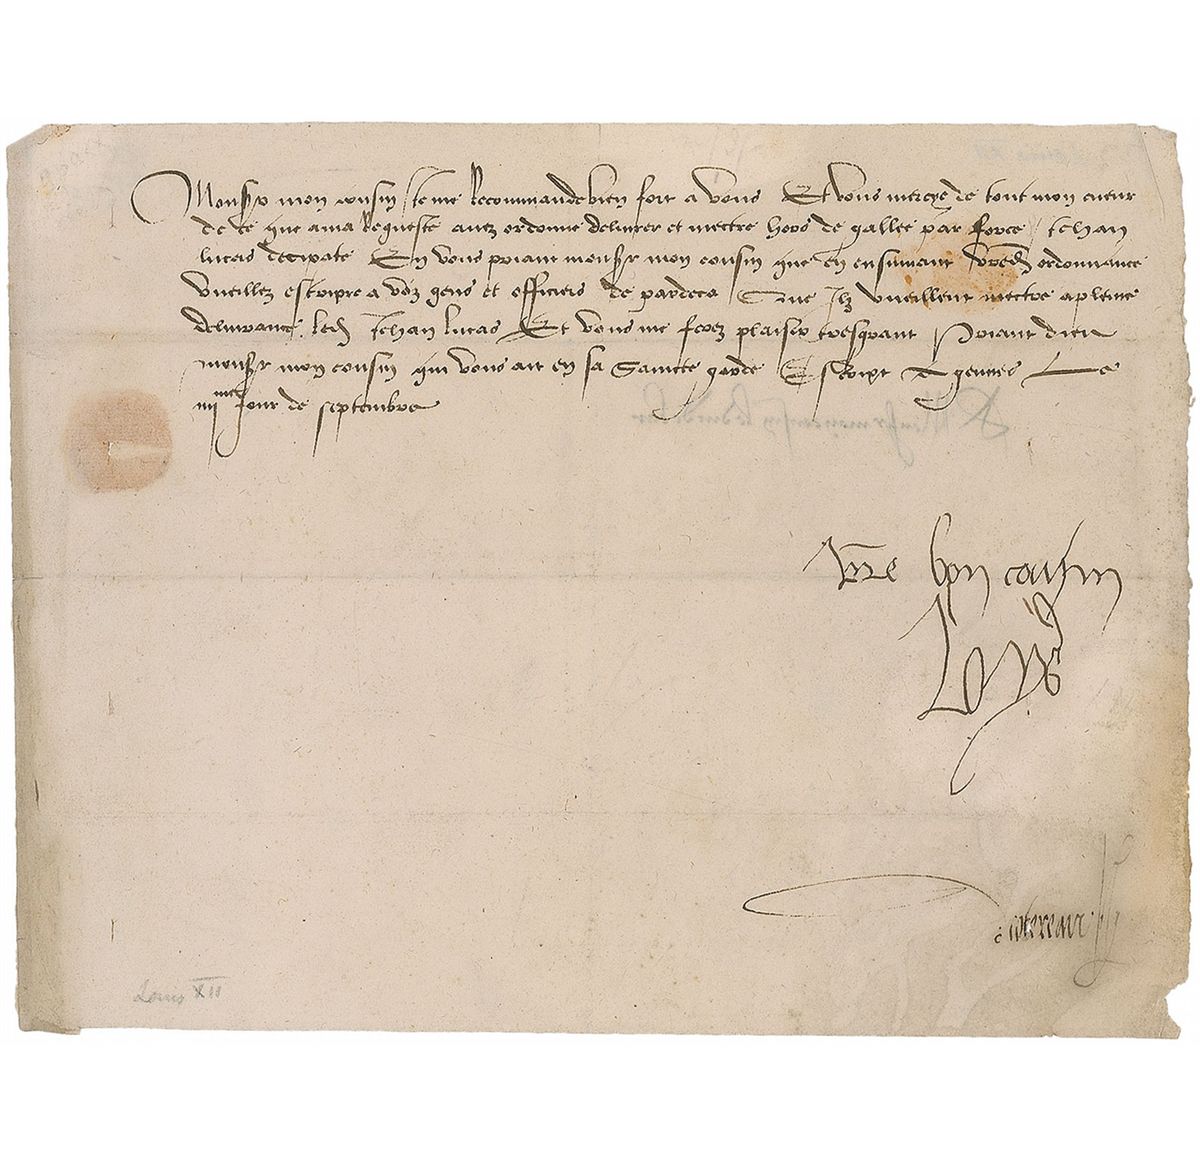 Mons[r] mon cousin Je me Recommande bien fort a vous Et vous mercye de tout mon cueur
de ce que a ma Requeste avez ordonne delivrer et mectre hors de gallee par force Jehan
lucas Et vous priant mons[r] mon cousin que en ensuivant vred ordonnance
vueillez escripre a voz gens et officiers de pardeca Que Ilz vueillent mectre a pleine
delivrance led Jehan lucas Et vous me ferez plaisir tresgrant Priant dieu
mons[r] mon cousin qui vous ait en sa saincte garde Escript A gennes Le
iiii[me] jour de septembre
Vre bon cousin
Loys
Cotereau
Louis XII